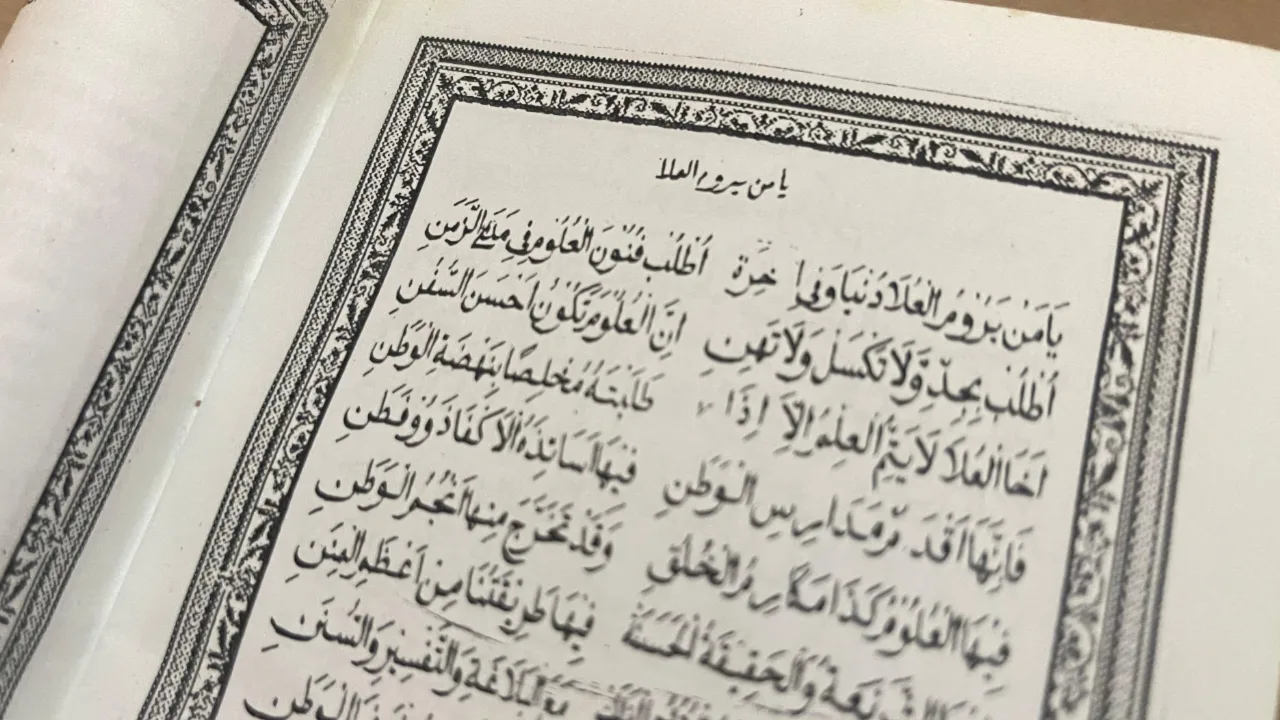 يا من يروم العلا
يَا مَنْ يَرُومُ الْعُلَا دُنْيَا وَفِي اٰخِرَةٍ أُطْلُبْ فُنُونَ الْعُلُومِ فِي مَدَى الزَّمَنِ
أُطْلُبْ بِجِدٍّ وَلَا تَكْسَلْ وَلَا تَهِنِ إِنَّ الْعُلُوْمَ تَكُوْنُ اَحْسَنَ السُّفُنِ
اَخَا الْعُلَا لَا يَتِمُّ الْعِلْمُ اِلَّا اِذَا طَلَبْتَهُ مُخْلِصًا بِنَهْضَةِ الْوَطَنِ
فَاِنَّهَا اَقْدَمُ مَدَارِسِ الْوَطَنِ فِيْهَا اَسَاتِذَةُ الْاَكْفَاءِ ذَوُو فَطَنِ
فِيْهَا الْعُلُوْمُ كَذَا مَكَارِمُ الْخُلُقِ وَقَدْ تَخَرَّجَ مِنْهَا اَنْجُمُ الْوَطَنِ
الشَّرِيْعَةُ وَالْحَقِيْقَةُ الْحَسَنَةُ فِيْهَا طَرِيْقَتُنَا مِنْ اَعْظَمِ الْمِنَنِ
مَعَ الْبَلَاغَةِ وَالتَّفْسِيْرِ وَالسُّنَنِ
الْوَطَنِ